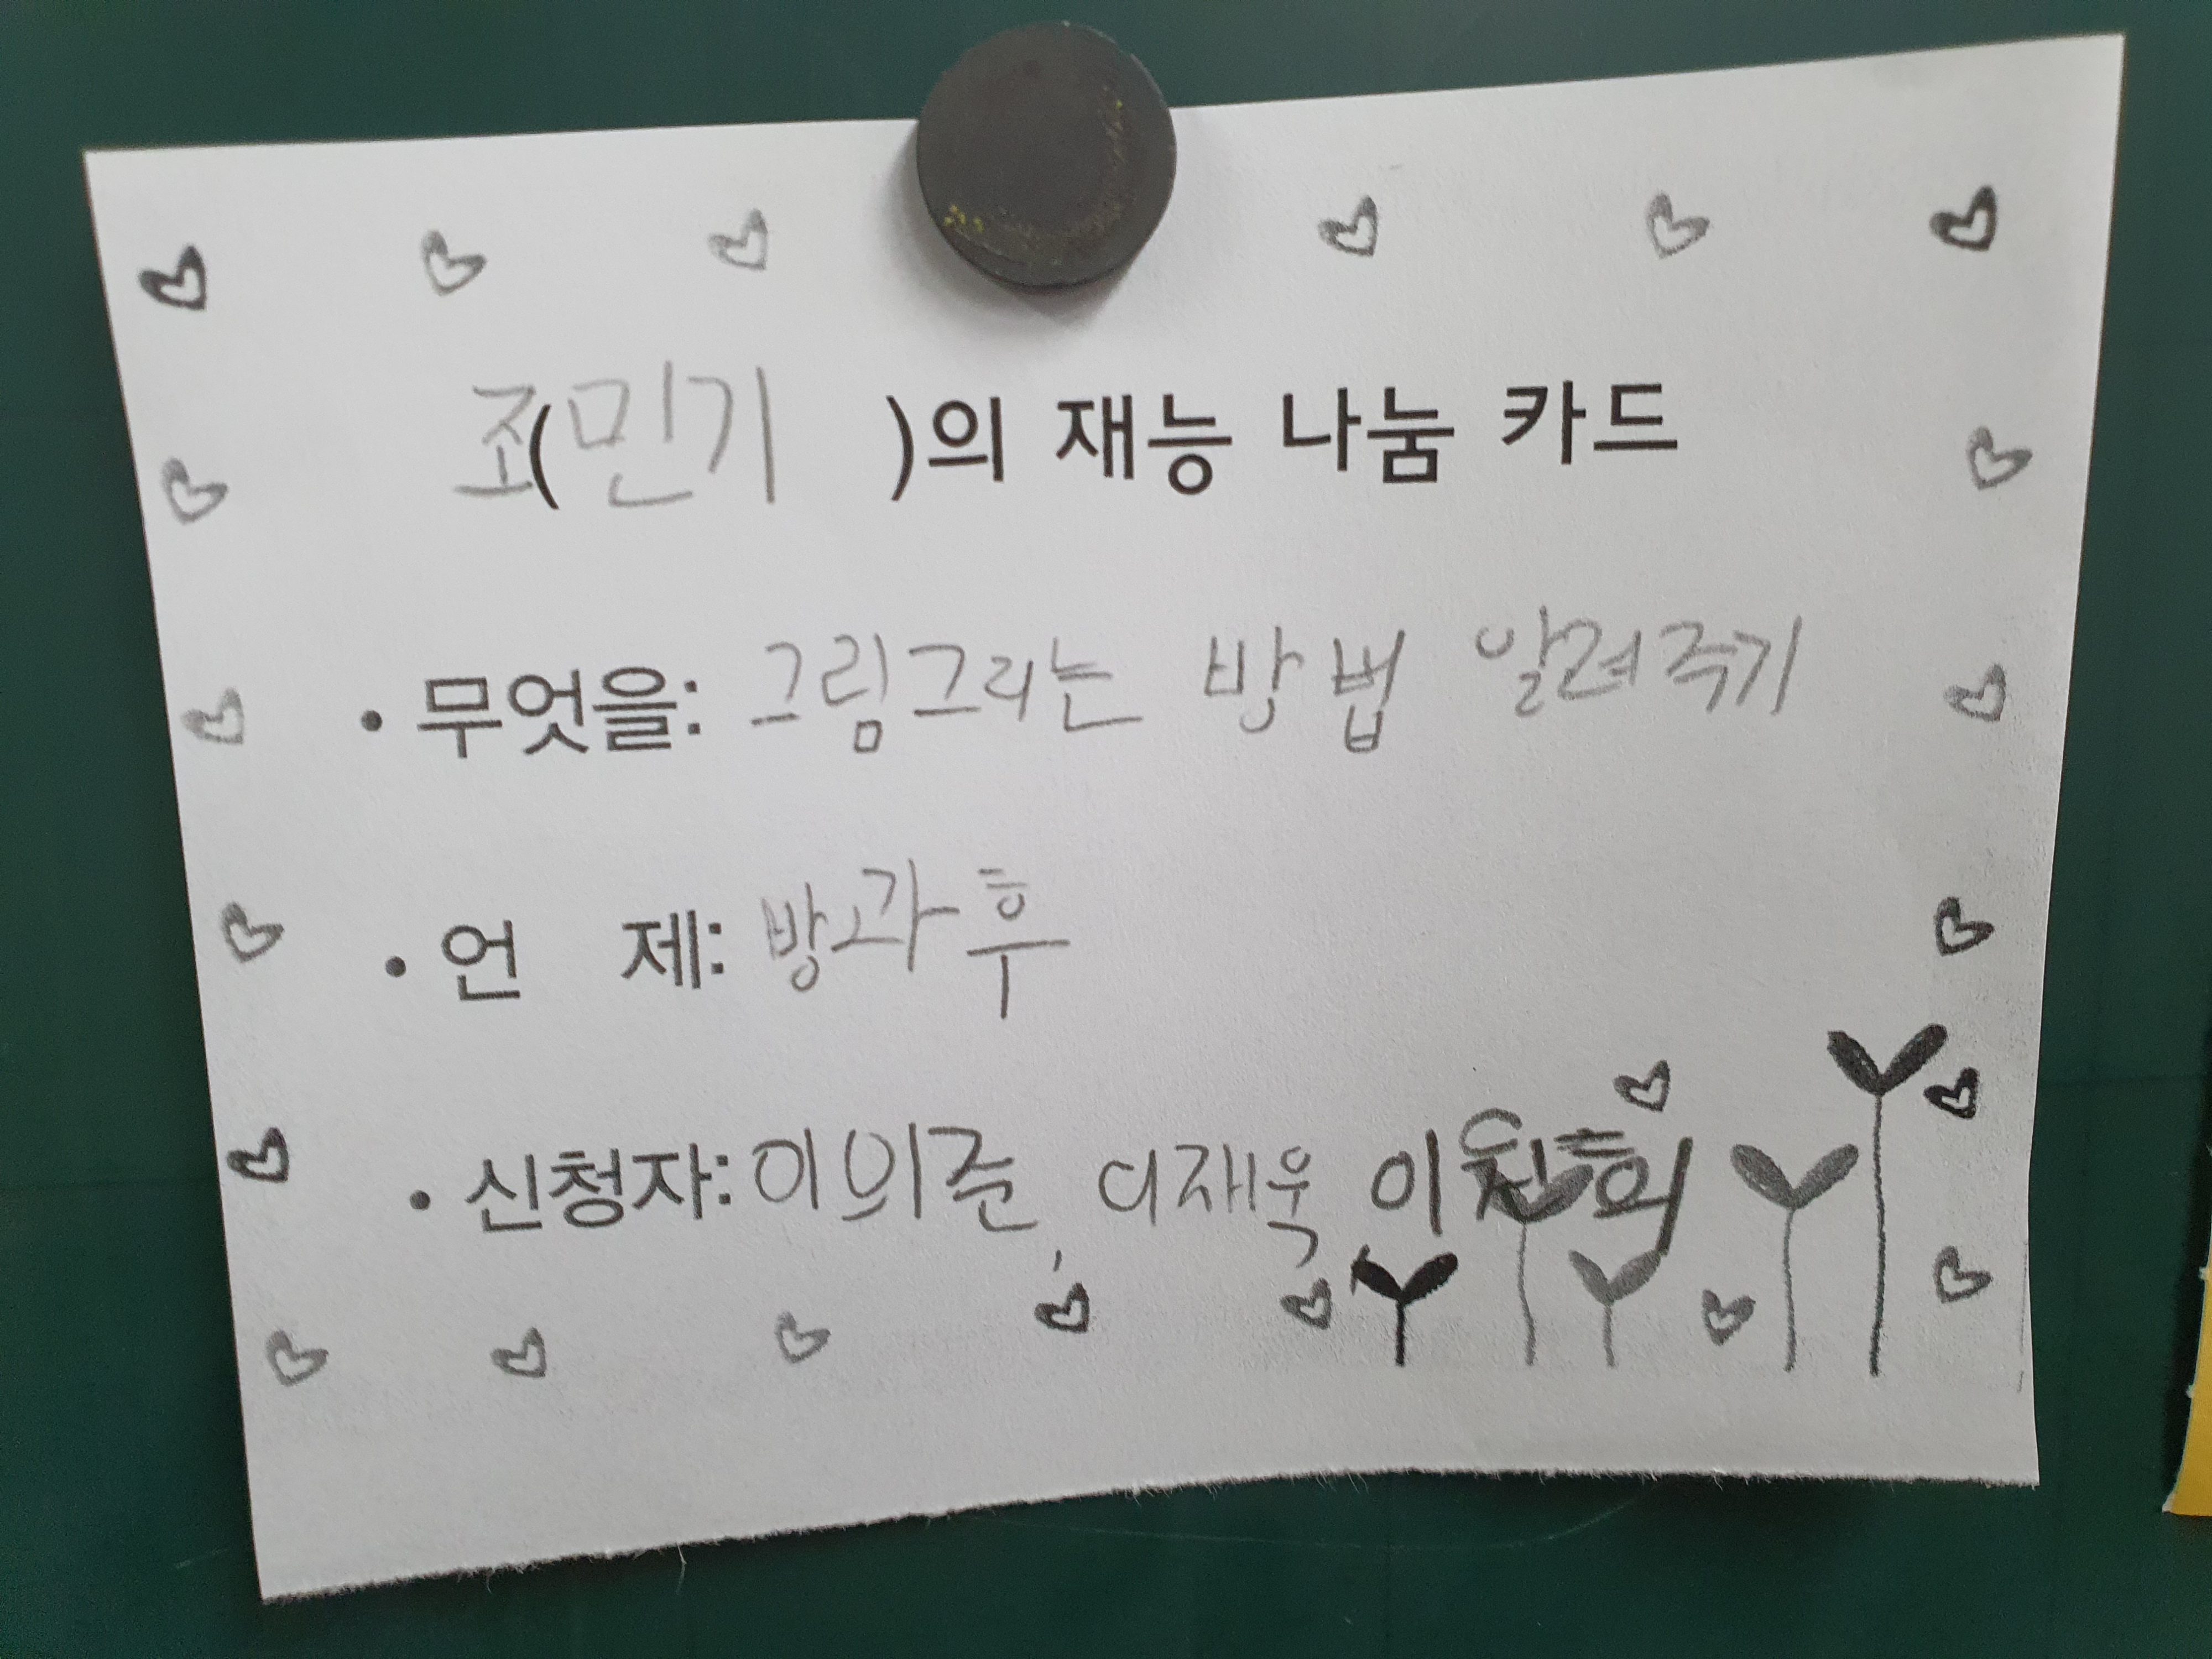 조(민기 )의 재능 나눔 카드
• 무엇을: 그림그리는 방법 알려주기
• 언 제: 방과후
• 신청자: 이의준, 이재욱